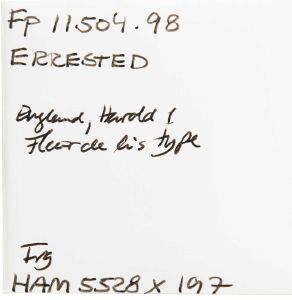 Fp 11504.98
ERRESTED
England, Harold I
Fleur de lis type
Frg
HAM 5528 x 197